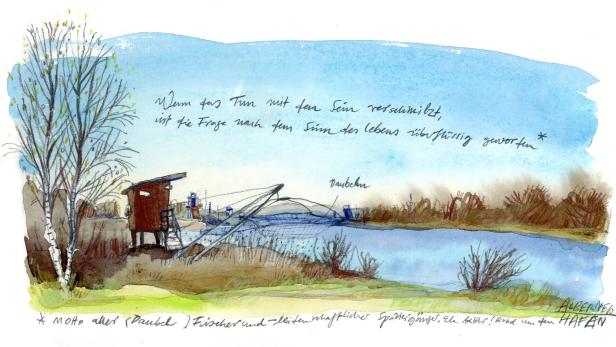 Wenn das Tun mit dem Sein verschmilzt,
ist die Frage nach dem Sinn des Lebens überflüssig geworden*
Daubeln
* MOTTO aller (Daubel) Fischer und leidenschaftlicher Spaziergänger, rund um den
ALBERNER HAFEN